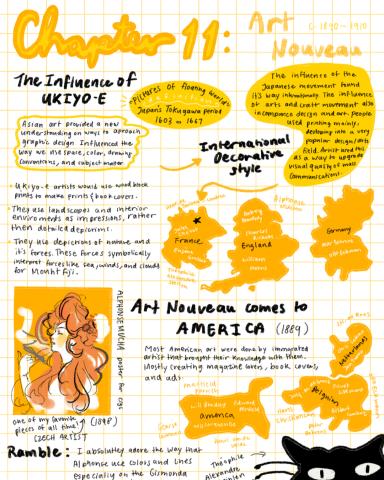 Chapter 11:
Art
Nouveau
C. 1890 - 1910
The Influence of
UKIYO-E
"Pictures of floating World"
Japan's Tokugawa period
1603 - 1867
The influence of the
Japanese movement found
it's way internationally. The influence
of arts and craft movement also
incompance design and art. people
used printing mainly,
developing into a very
popular design/arts
field. Artist used this
as a way to upgrade
visual quality of mass
communications.
Asian art provided a new
understanding on ways to aproach
graphic design. Influenced the
way we use space, color, drawing
conventions, and subject matter
International
Decorative
style
• Ukiyo-e artists would use wood block
prints to make prints & book covers.
• They use landscapes and interior
enviroments as impressions, rather
then detailed depictions.
• They use depictions of nature and
it's forces. These forces symbolically
interpret forces like sea, winds, and clouds
for Mount Fiji.
Jules
Cheret
France
Eugene
Grasset
Theophile
Alexandre
Steinlen
Aubrey
Beardsley
Charles
Ricketts
England
William
Morris
Alphonse
Mucha
Germany
Otto Eckmann
ALPHONSE MUCHA poster for cigs
one of my favorite
pieces of all time! (1898)
CZECH ARTIST
Art Nouveau comes to
AMERICA (1889)
Most American art were done by immigrated
artist that brought their knowledge with them.
Mostly creating magazine covers, book covers,
and ads.
Netherlands
maxfield
parrish
will Bradley
Edward
Penfield
America
Belgium
Ramble: I absolutely adore the way that
Alphonse use colors and lines
especially on the Gismonda
Théophile
Alexandre